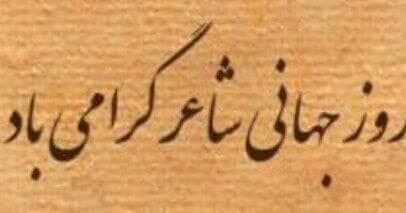 روز جهانی شاعر گرامی باد